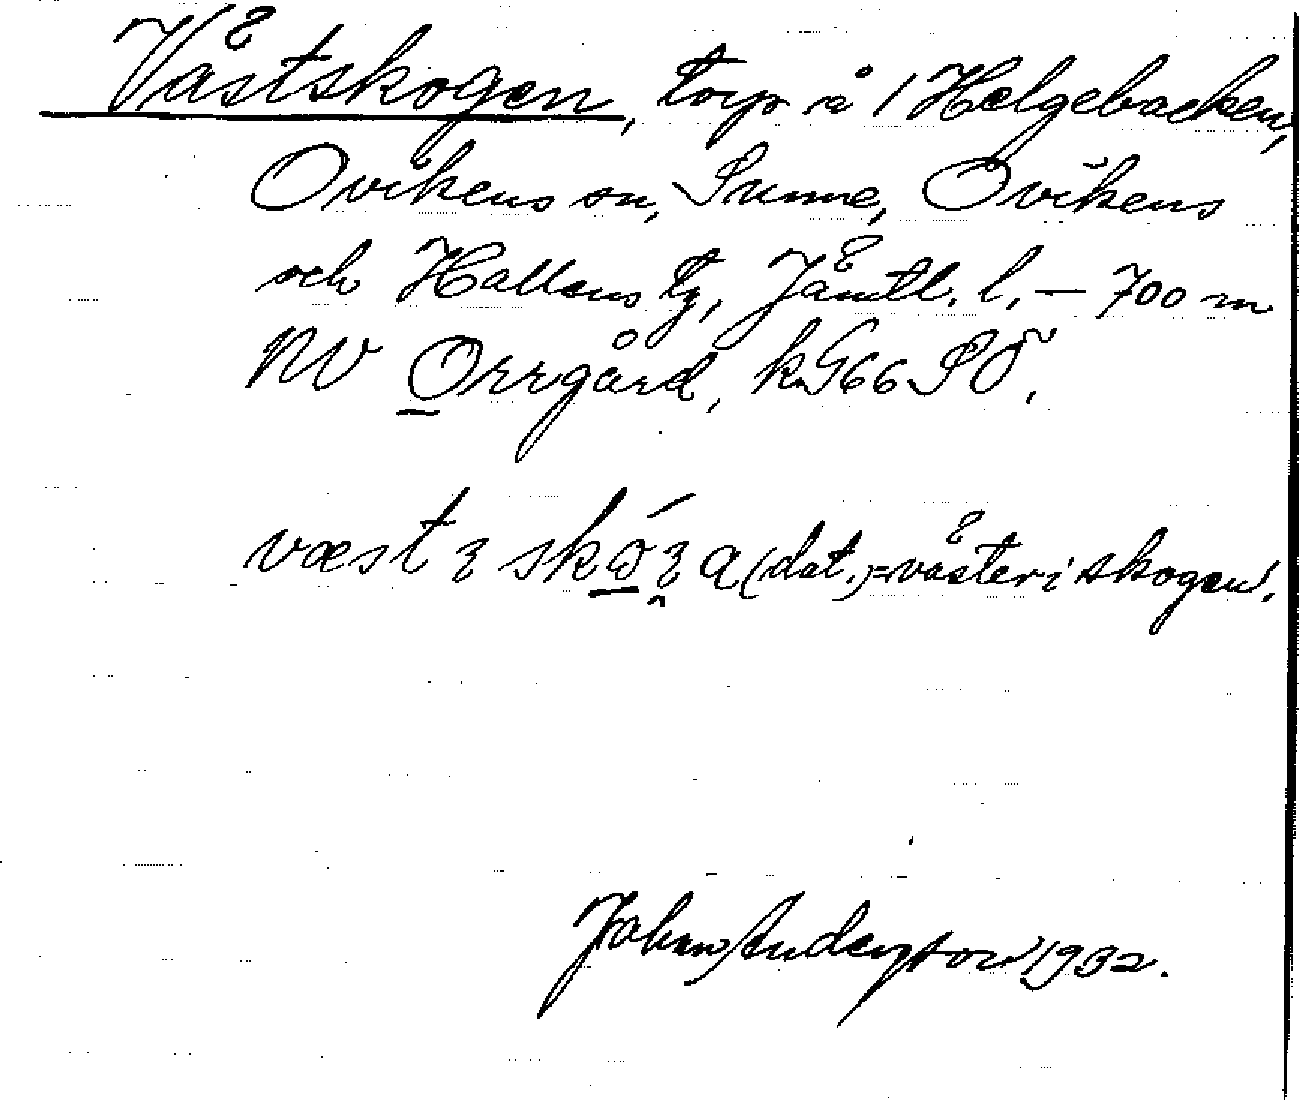 Västskogen, torp å 1 Helgebacken,
Ovikens sn, Sunne, Ovikens
och Hallens tg, Jämtl. l. – 700 m
NV Orrgård, kG66SO.
væst ʒ skǫ́ʒ a (dat.) = väster i skogen'.
Johan Anderson 1932.